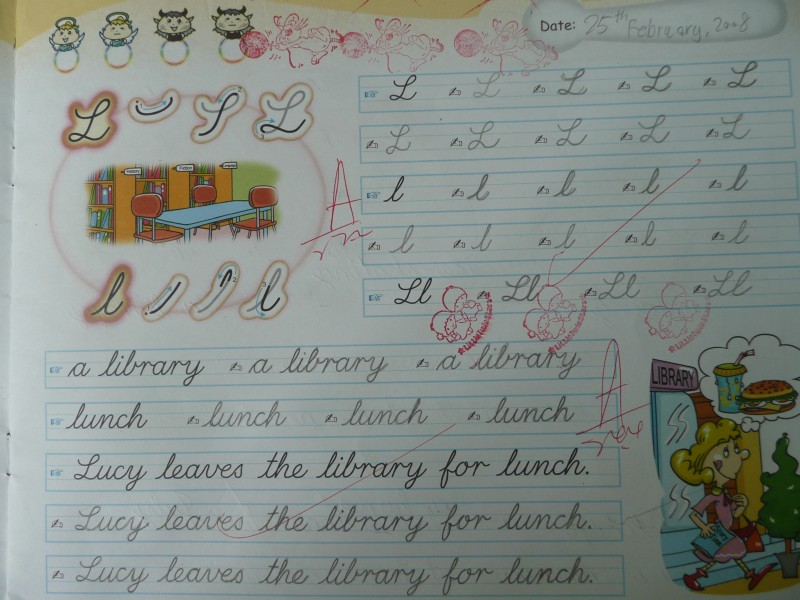 Date: 25th February, 2008
L L L L L
L L L L L L
l l l l l
l l l l l
Ll Ll Ll Ll
L
History Fiction
l l
A
a library a library a library
lunch lunch lunch lunch
A
LIBRARY
Lucy leaves the library for lunch.
Lucy leaves the library for lunch.
Lucy leaves the library for lunch.